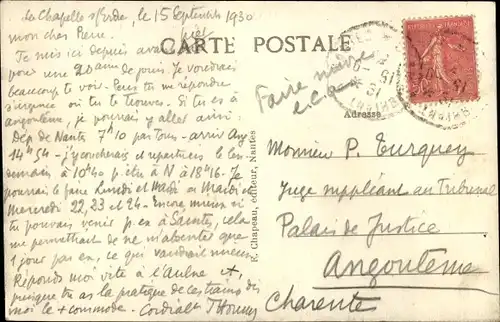 La Chapelle s/Erdre, le 15 Septembre 1930
mon cher Pierre.
Je suis ici depuis avant hier
pour une 20aine de jours. Je voudrais
beaucoup te voir. Peux tu me répondre
d'urgence où tu te trouves. Si tu es à
angoulême, je pourrais y aller ainsi.
Dép de Nantes 7h10 par Tours - arriv Ang
14h54 - J'y coucherais et repartirais le len
demain à 10h40 p. être à N à 18h16. Je
pourrai le faire Lundi et Mardi ou Mardi et
Mercredi 22, 23 et 24 - Encore mieux si
tu pouvais venir p. ex à Saintes, cela
me permettrait de ne m'absenter que
1 jour par ex, ce qui vaudrait mieux
Réponds moi vite à l'Aulne
puisque tu as la pratique de ces trains dis
moi le + commode. Cordialt
CARTE POSTALE
Faire suivre
Adresse
R. Chapeau, éditeur, Nantes
Monsieur P. Turquey
Juge suppléant au Tribunal
Palais de Justice
Angoulême
Charente